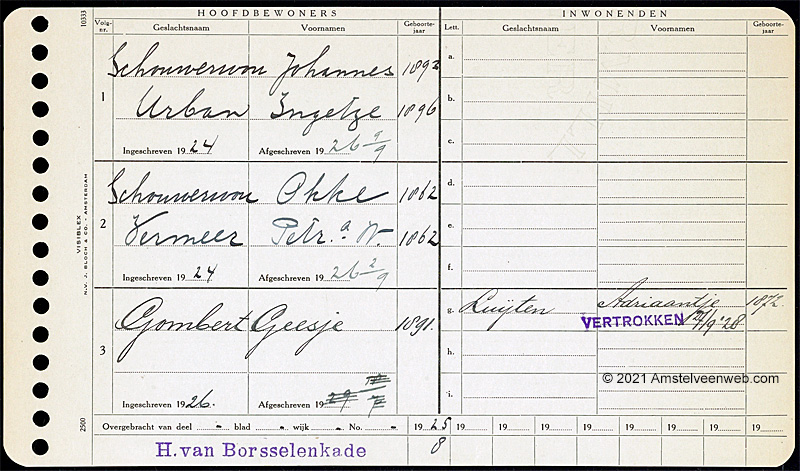 HOOFDBEWONERS INWONENDEN
Volg-nr. Geslachtsnaam Voornamen Geboorte-jaar Lett. Geslachtsnaam Voornamen Geboorte-jaar
10333
Schouwerwou Johannes 1892 a.
1 Urban Ingetze 1896 b.
c.
Ingeschreven 1924 Afgeschreven 1926 9/9
Schouwerwou Okke 1862 d.
2 Vermeer Petr.a W. 1862 e.
f.
Ingeschreven 1924 Afgeschreven 1926 2/9
VISIBLEX
N.V. J. BLOCH & CO. - AMSTERDAM
g. Luijten Adriaantje 1872
3 Gombert Geesje 1891.
VERTROKKEN /9 '28
h.
© 2021 Amstelveenweb.com
i.
Ingeschreven 1926. Afgeschreven 1929
2500
Overgebracht van deel - blad - wijk - No. - 1925 19 19 19 19 19 19 19 19
H. van Borsselenkade 8